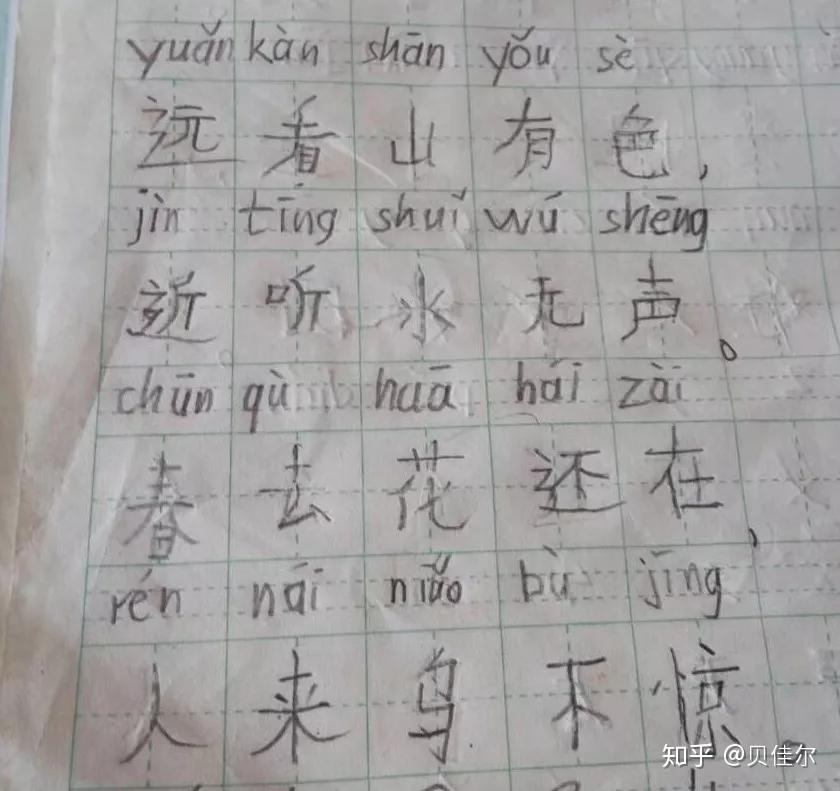 yuǎn kàn shān yǒu sè
远看山有色，
jìn tīng shuǐ wú shēng
近听水无声。
chūn qù huā hái zài
春去花还在，
rén nái niǎo bù jīng
人来鸟不惊。
知乎 @贝佳尔